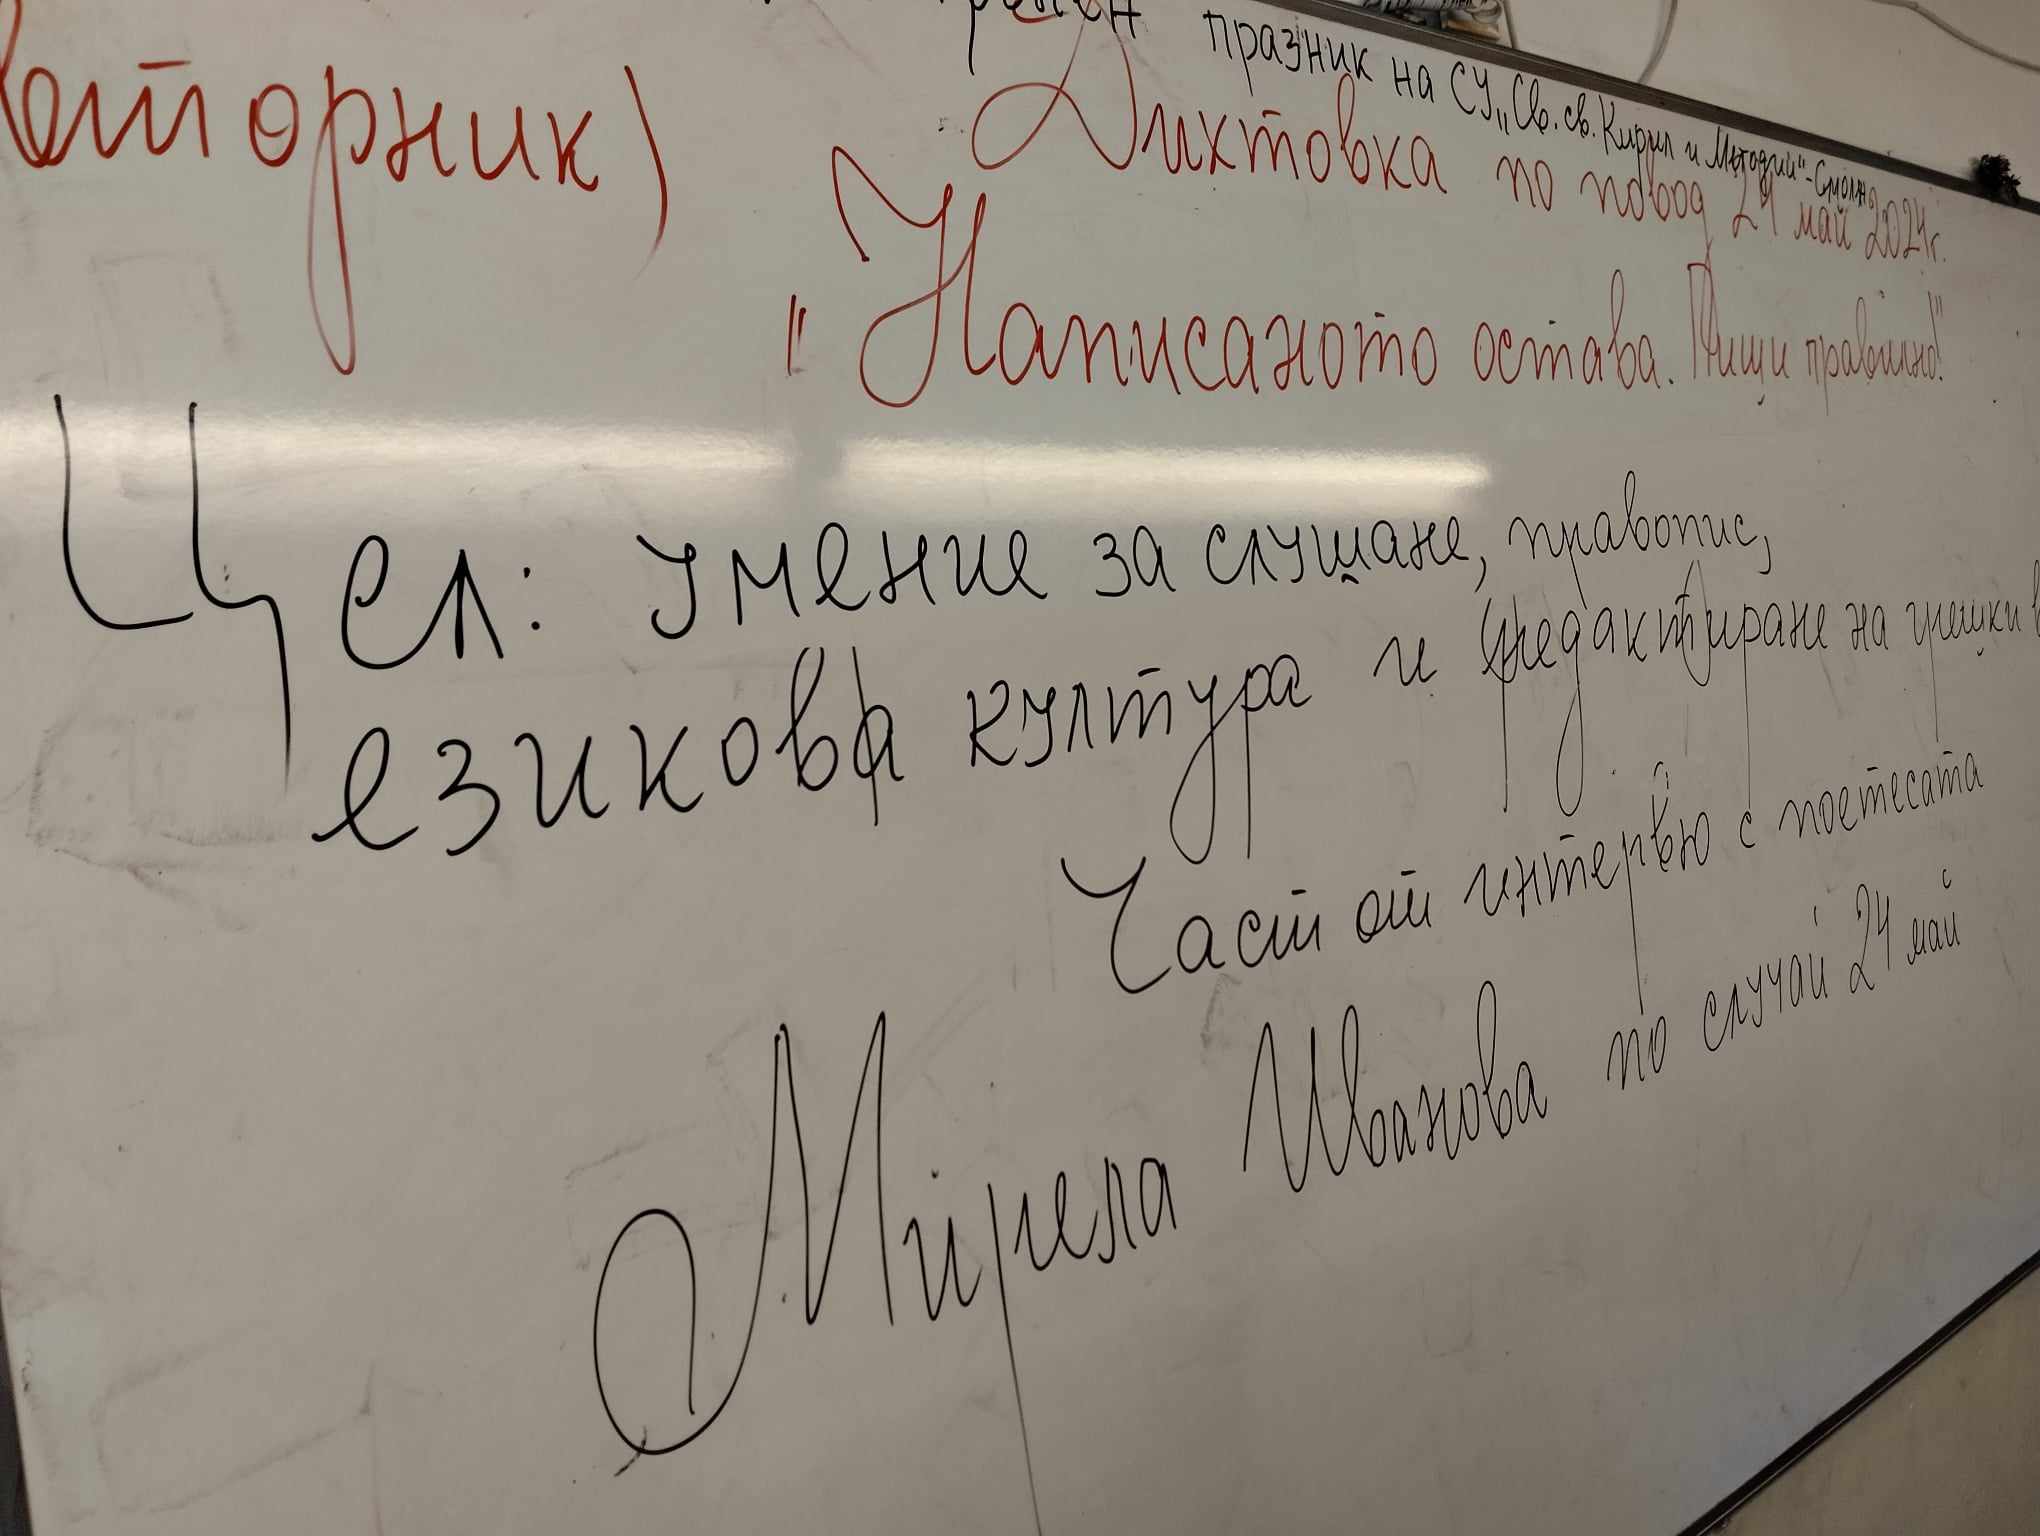 празник на СУ „Св. св. Кирил и Методий" - Смолян
вторник)
Диктовка по повод 24 май 2024г.
"Написаното остава. Пиши правилно!"
Цел: умение за слушане, правопис,
езикова култура и редактиране на грешки
Част от интервю с поетесата
Мирела Иванова по случай 24 май